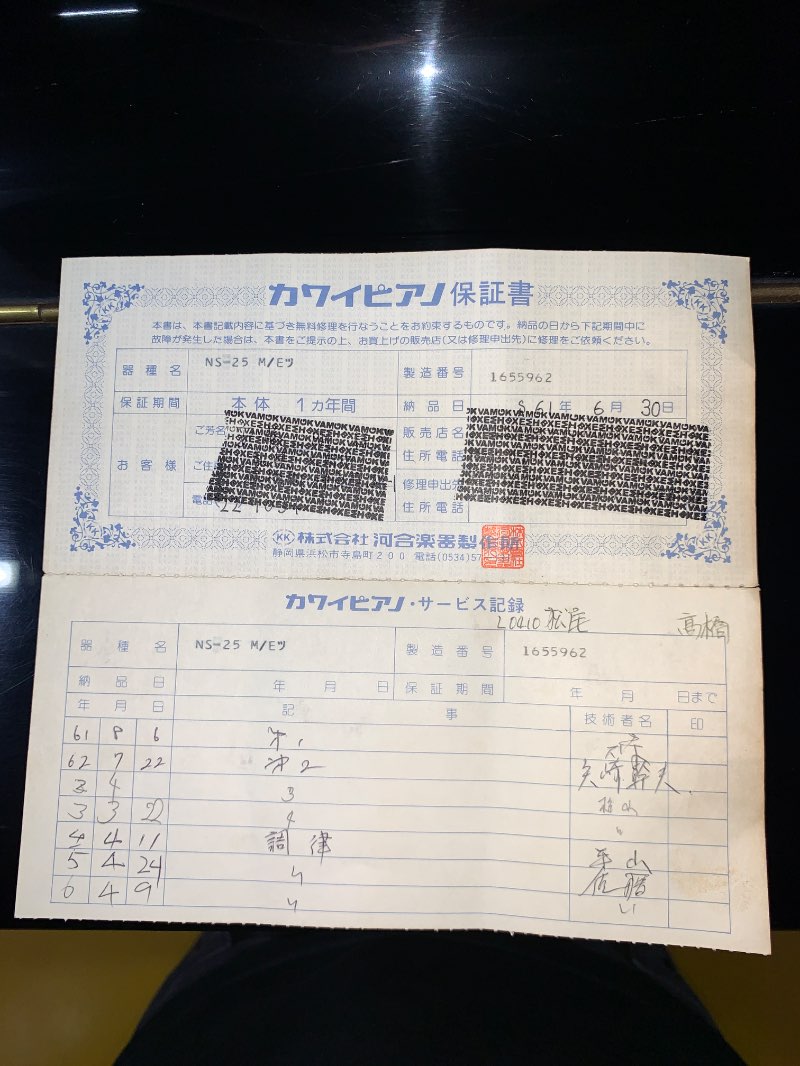 カワイピアノ保証書
本書は、本書記載内容に基づき無料修理を行なうことをお約束するものです。納品の日から下記期間中に
故障が発生した場合は、本書をご提示の上、お買上げの販売店(又は修理申出先)に修理をご依頼ください。
器種名 NS-25 M/Eツ 製造番号 1655962
保証期間 本体 1ヵ年間 納品日 S61年 6月 30日
お客様 ご芳名 販売店名
ご住 住所電話
電 22 修理申出先
住所電話
KK 株式会社 河合楽器製作所
静岡県浜松市寺島町200 電話(0534)57
カワイピアノ・サービス記録
L0410 松尾 高橋
器種名 NS-25 M/Eツ 製造番号 1655962
納品日 年 月 日 保証期間 年 月 日まで
年 月 日 記事 技術者名 印
61 8 6 1
62 7 22 2 矢崎幹夫
3 4 3
3 3 22 4 〃
4 4 11 調律 平山
5 4 24 〃 佐藤
6 4 9 〃 〃